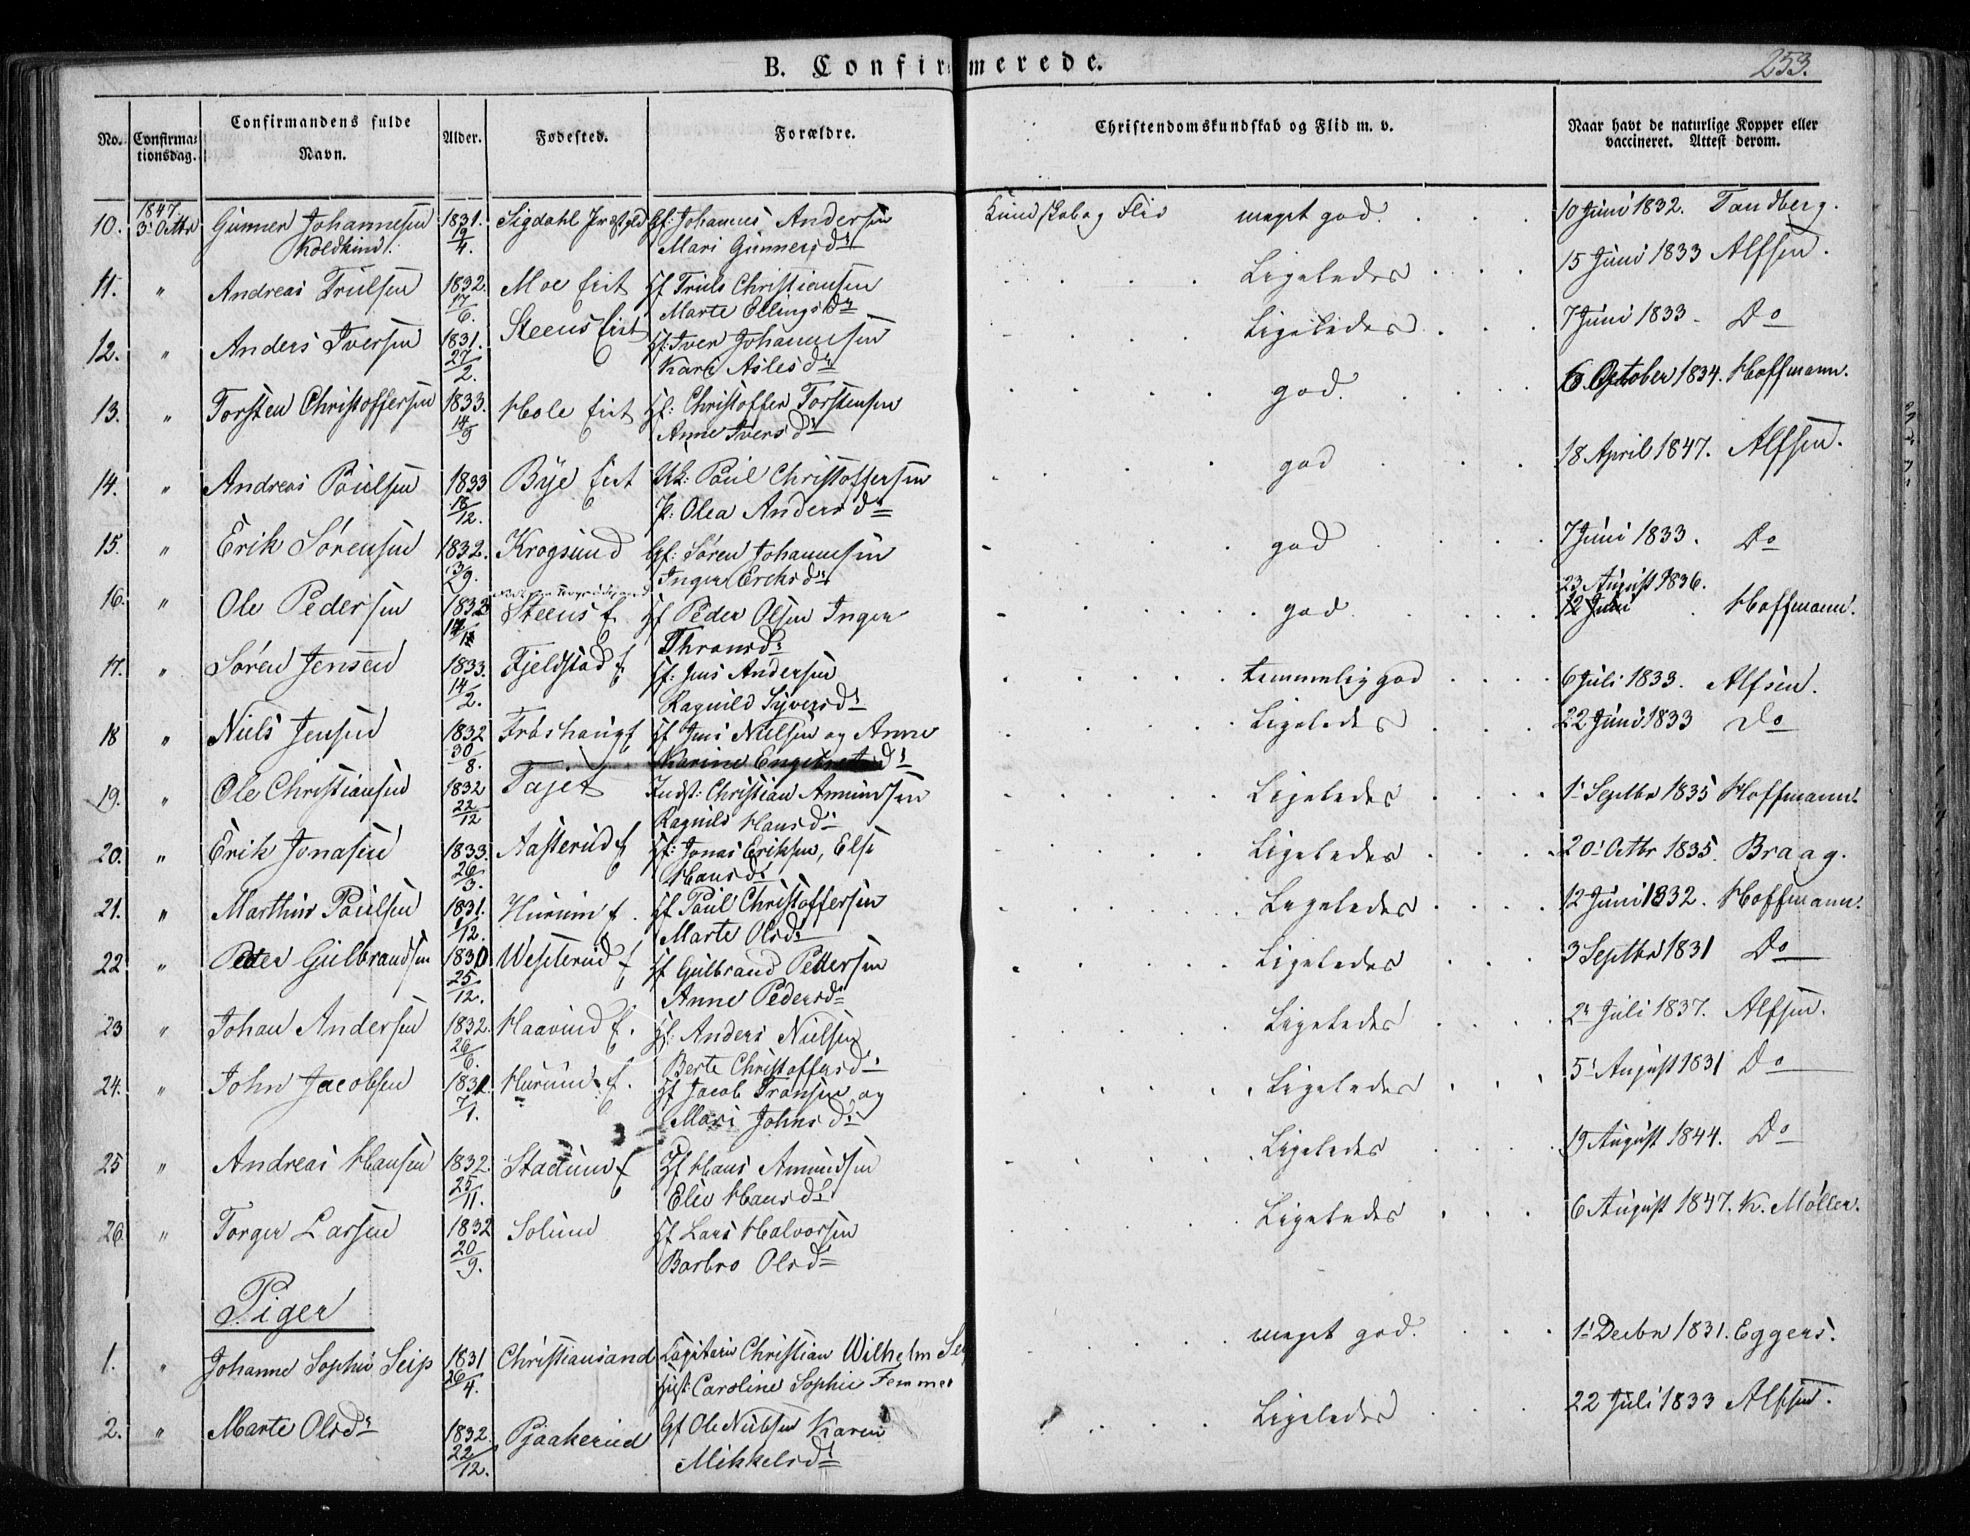 B. Confirmerede.
253.
No. Confirmationsdag. Confirmandens fulde Navn. Alder. Fødested. Forældre. Christendomskundskab og Flid m. v. Naar havt de naturlige Kopper eller vaccineret. Attest derom.
1847.
10. 3' Octbr Gunner Johannesen 1831. Sigdahl Gf: Johannes Andersen Kundskab og Flid meget god. 10 Juni 1832. Tandberg.
19/4. Mari Gunnersdr
11. " Andreas Trulsen 1832. Moe Eiet Hf Truls Christiansen Ligeledes 15 Juni 1833 Alfsen.
17/6. Marte Ellingsdr
12. " Anders Iversen 1831. Steens Eiet Hf: Iver Johannesen Ligeledes 7 Juni 1833 Do
27/2. Kari Aslesdr
13. " Torsten Christoffersen 1833. Hole Eiet Hf: Christoffer Torstensen god. 6 October 1834. Hoffmann.
14/9 Anne Iversdr
14. " Andreas Poulsen 1833 Bye Eiet Uk: Poul Christoffersen god 18 April 1847. Alfsen.
18/12. P: Olea Andersdr
15. " Erik Sørensen 1832. Krogsund Gf: Søren Johannesen god 7 Juni 1833. Do
3/9. Inger Ericksdr
16. " Ole Pedersen 1832 Steens E. Hf Peder Olsen Inger god 23 August 1836. Hoffmann.
12 Juni
Thronsdr
17. " Søren Jensen 1833. Fjeldstad E. Hf: Jens Andersen temmelig god 6 Juli 1833. Alfsen.
14/2. Ragnild Syversdr
18 " Niels Jensen 1832 Frøshaug E Hf Jens Nielsen og Anne Ligeledes 22 Juni 1833 Do
30/8. Karine
19. " Ole Christiansen 1832 Fajet Indst: Christian Amundsen Ligeledes 1 Septbr 1835 Hoffmann.
22/12 Ragnild Hansdr
20. " Erik Jonasen 1833. Aasterud E Hf: Jonas Eriksen, Else Ligeledes 20' Octbr 1835. Braag.
26/3. Hansdr
21. " Marthin Poulsen 1831. Hurum E. Hf Poul Christoffersen Ligeledes 12 Juni 1832. Hoffmann.
1/12. Marte Olsdr
22 " Peder Gulbrandsen 1830 Westerud E Hf Gulbrand Pedersen Ligeledes 3 Septbr 1831 Do
25/12. Anne Pedersdr
23 " Johan Andersen 1832. Haavind E. Hf: Anders Nielsen Ligeledes 2 Juli 1837. Alfsen.
26/6. Berte Christoffersdr
24. " John Jacobsen 1832 Hurum E. Hf Jacob Tronsen og Ligeledes 5' August 1831 Do
7/1. Mari Johnsdr
25 " Andreas Hansen 1832. Stadum E Hf Hans Amundsen Ligeledes 19 August 1844. Do
25/11. Elie Hansdr
26 " Torger Larsen 1832 Solum Hf Lars Halvorsen Ligeledes 6 August 1847. K. Møller.
20/9. Barbro Olsdr
Piger
1. " Johanne Sophie Seip 1831 Christiansand Capitain Christian Wilhelm Se meget god. 1' Decbr 1831. Eggers.
26/4. Caroline Sophie Femmer
2. " Marte Olsdr 1832. Pjaakerud Gf Ole Nielsen Karen Ligeledes 22 Juli 1833 Alfsen.
22/12. Mikkelsdr